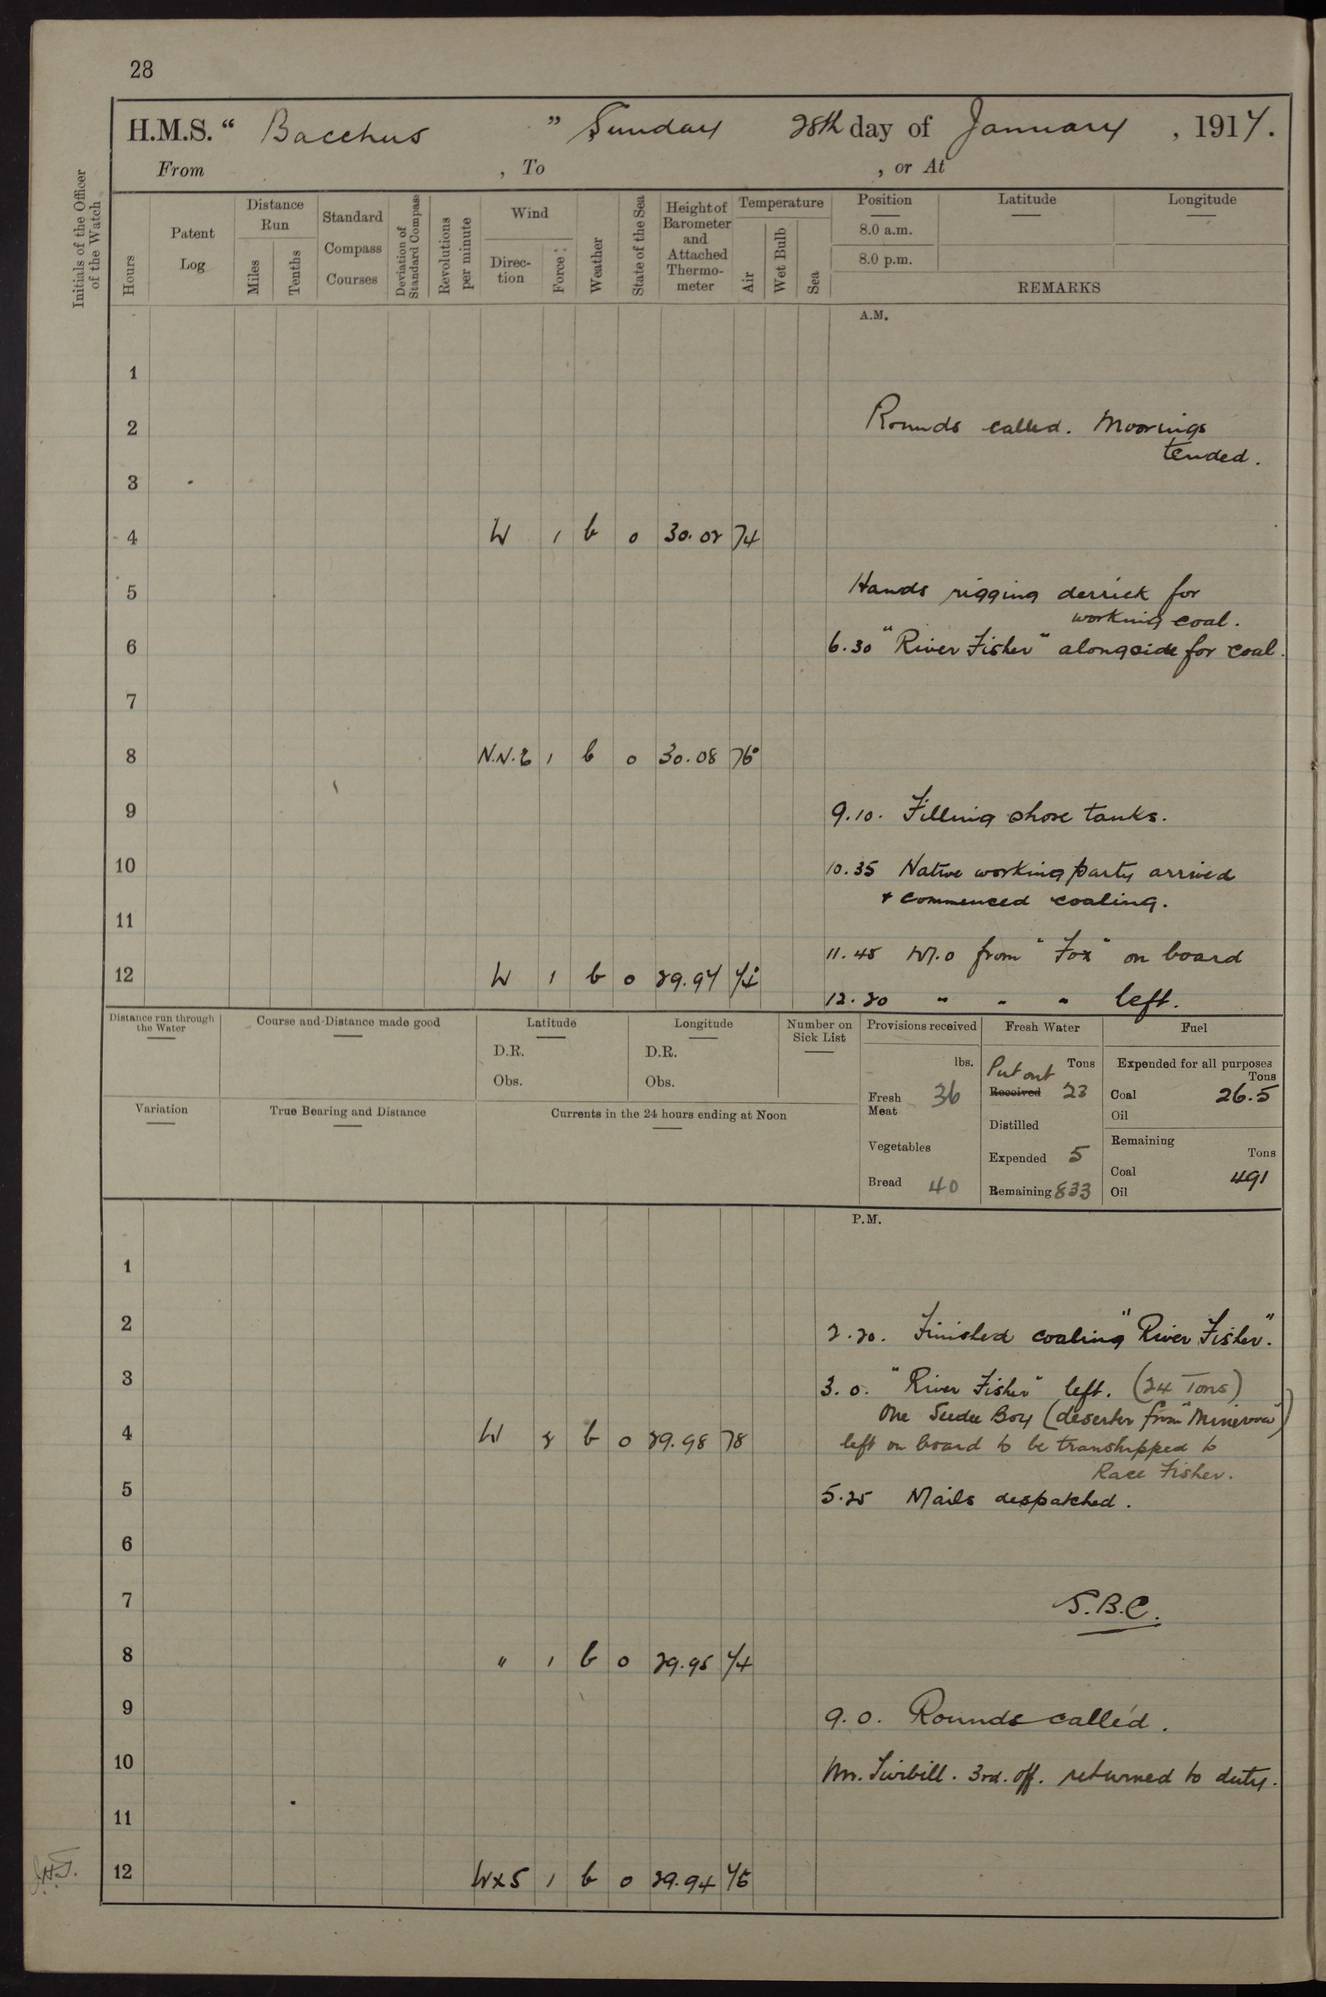 28
H.M.S. " Bacchus " Sunday 28th day of January , 1917.
From , To , or At
Initials of the Officer of the Watch
Hours
Patent Log
Distance Run
Miles
Tenths
Standard Compass Courses
Deviation of Standard Compass
Revolutions per minute
Wind
Direction
Force
Weather
State of the Sea
Height of Barometer and Attached Thermometer
Temperature
Air
Wet Bulb
Sea
Position
8.0 a.m.
8.0 p.m.
Latitude
Longitude
REMARKS
A.M.
1
2 Rounds called. Moorings
tended.
3
4 W 1 b 0 30.02 74
5 Hands rigging derrick for
working coal.
6 6.30 "River Fisher" alongside for coal.
7
8 N.N.E 1 b 0 30.08 76
9 9.10. Filling shore tanks.
10 10.35 Native working party arrived
& commenced coaling.
11
11.45 W.O from "Fox" on board
12 W 1 b 0 29.97
12.20 " " " left.
Distance run through the Water
Course and Distance made good
Latitude
D.R.
Obs.
Longitude
D.R.
Obs.
Number on Sick List
Provisions received
lbs.
Fresh Meat 36
Vegetables
Bread 40
Fresh Water
Put out Tons
Received 23
Distilled
Expended 5
Remaining 833
Fuel
Expended for all purposes
Tons
Coal 26.5
Oil
Remaining
Tons
Coal 491
Oil
Variation
True Bearing and Distance
Currents in the 24 hours ending at Noon
P.M.
1
2 2.20. Finished coaling "River Fisher".
3 3.0. "River Fisher" left. (24 Tons)
One Seedee Boy (deserter from "Minerva")
4 W 2 b 0 29.98 78 left on board to be transhipped to
Race Fisher.
5 5.25 Mails despatched.
6
7 S.B.C.
8 " 1 b 0 29.95 74
9 9.0. Rounds called.
10 Mr. 3rd. off. returned to duty.
11
12 WxS 1 b 0 29.94 75